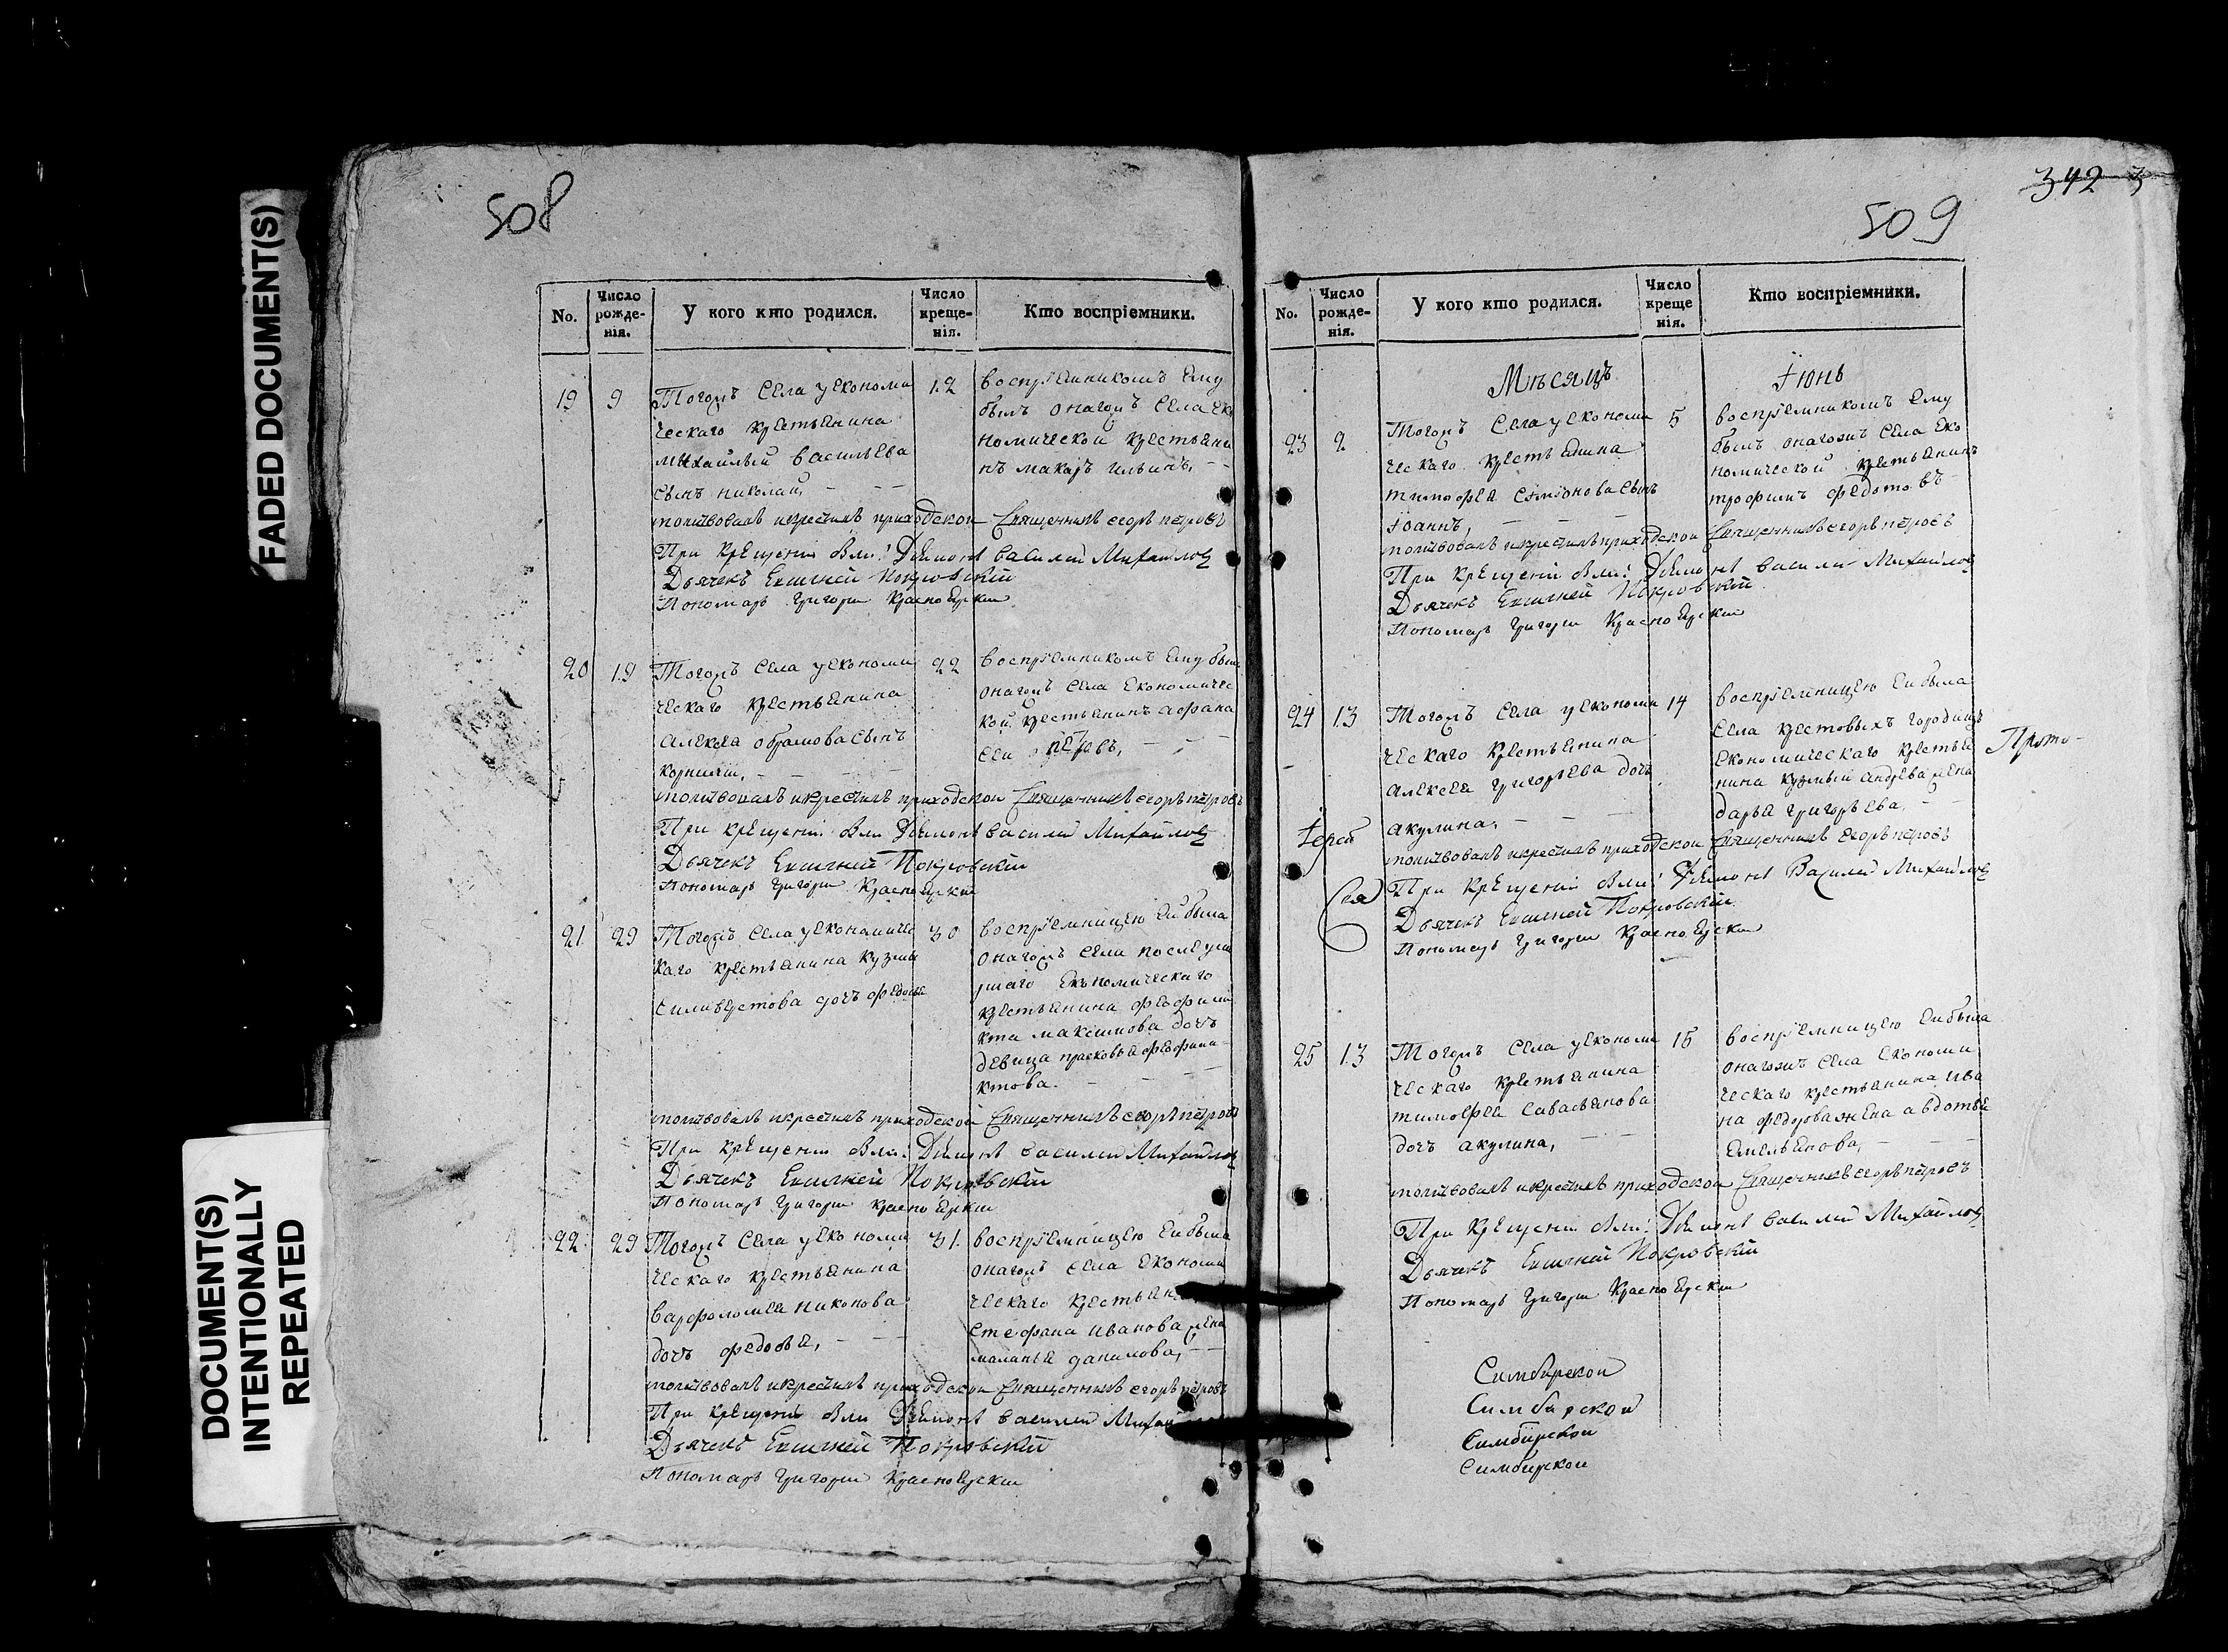 FADED DOCUMENT(S)
DOCUMENT(S)
INTENTIONALLY
REPEATED
508
No.
Число
рожде-
нія.
У кого кто родился.
Число
креще-
нія.
Кто воспріемники.
19 9 Тогожъ села у Економи
ческаго крестьянина
михайлы васильева
сынъ николай,
12 воспрiемникомъ ему
былъ онагожъ села еко
номической крестьяни
нъ макаръ ильинъ,
молитвовалъ и крестилъ приходской Священникъ егоръ петровъ
При крещении были: Дьяконъ василей Михайловъ
Дьячекъ Евгеней Покровскій
Пономарь григори Красноярскии
20 19 Тогожъ села у Економи
ческаго крестьянина
алексея обрамова сынъ
корнилии,
22 воспрiемникомъ ему былъ
онагожъ села Економичес
кой крестьянинъ афана
сеи петровъ,
молитвовалъ и крестилъ приходской Священникъ егоръ петровъ
При крещении были Дьяконъ василий Михайловъ
Дьячекъ Евгеней Покровскій
Пономарь григори Красноярскии
21 29 Тогожъ села у Економичес
каго крестьянина кузмы
силиверстова дочь федосья
30 воспрiемницею ей была
онагожъ села после умер
шаго Економическаго
крестьянина феофила
кта максимова дочь
девица прасковья феофила
ктова.
молитвовалъ и крестилъ приходской Священникъ егоръ петровъ
При крещении были: Дьяконъ василей Михайловъ
Дьячекъ Евгеней Покровскій
Пономарь григори Красноярскии
22 29 Тогожъ села у Економи
ческаго крестьянина
варфоломея никонова
дочь федосья,
31 воспрiемницею ей была
онагожъ села Економи
ческаго крестьян
стефана иванова жена
маланья данилова,
молитвовалъ и крестилъ приходской Священникъ егоръ петровъ
При крещении были Дьяконъ василей
Дьячекъ Евгеней Покровскій
Пономарь григори Красноярскии
342
509
No.
Число
рожде-
нія.
У кого кто родился.
Число
креще
нія.
Кто воспріемники.
Мѣсяцъ Iюнь
23 2 Тогожъ Села у Економи
ческаго крестьянина
тимофея симионова сынъ
Iоаннъ,
5 воспрiемникомъ ему
былъ онагожъ села Еко
номической крестьянинъ
трофимъ федотовъ
молитвовалъ и крестилъ приходской Священникъ егоръ петровъ
При крещении были: Дьяконъ василей Михайловъ
Дьячекъ Евгеней Покровскій
Пономарь григори Красноярскии
24 13 Тогожъ села у Економи
ческаго крестьянина
алексея григорьева дочь
акулина,
14 воспрiемницею ей была
села крестовыхъ городищъ
економическаго крестья
нина кузмы андреева жена
дарья григорьева,
Прото-
Iерей
молитвовалъ и крестилъ приходской Священникъ Егоръ петровъ
При крещении были: Дьяконъ Василей Михайловъ
Дьячекъ Евгеней Покровскій
Пономарь григори Красноярскии
25 13 Тогожъ села у Економи
ческаго крестьянина
тимофея савасьянова
дочь акулина,
15 воспрiемницею ей была
онагожъ села Економи
ческаго крестьянина ива
на федорова жена авдотья
емельянова,
молитвовалъ и крестилъ приходской Священникъ егоръ петровъ
При крещении были: Дьяконъ василей Михайловъ
Дьячекъ Евгеней Покровскій
Пономарь григори Красноярскии
Симбирской
Симбирской
Симбирской
Симбирской